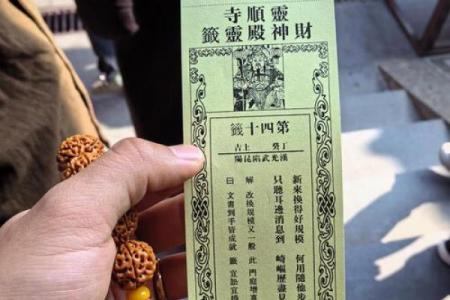 靈順寺
財神殿靈籤
第四十籤
丁癸 上吉
漢光武陷昆陽
新來換得好規模 何用隨他步
只聽耳邊消息到 崎嶇歷盡見
解 改換規模又一般 此門庭增
曰 文書到手皆成就 籤 宜訟宜